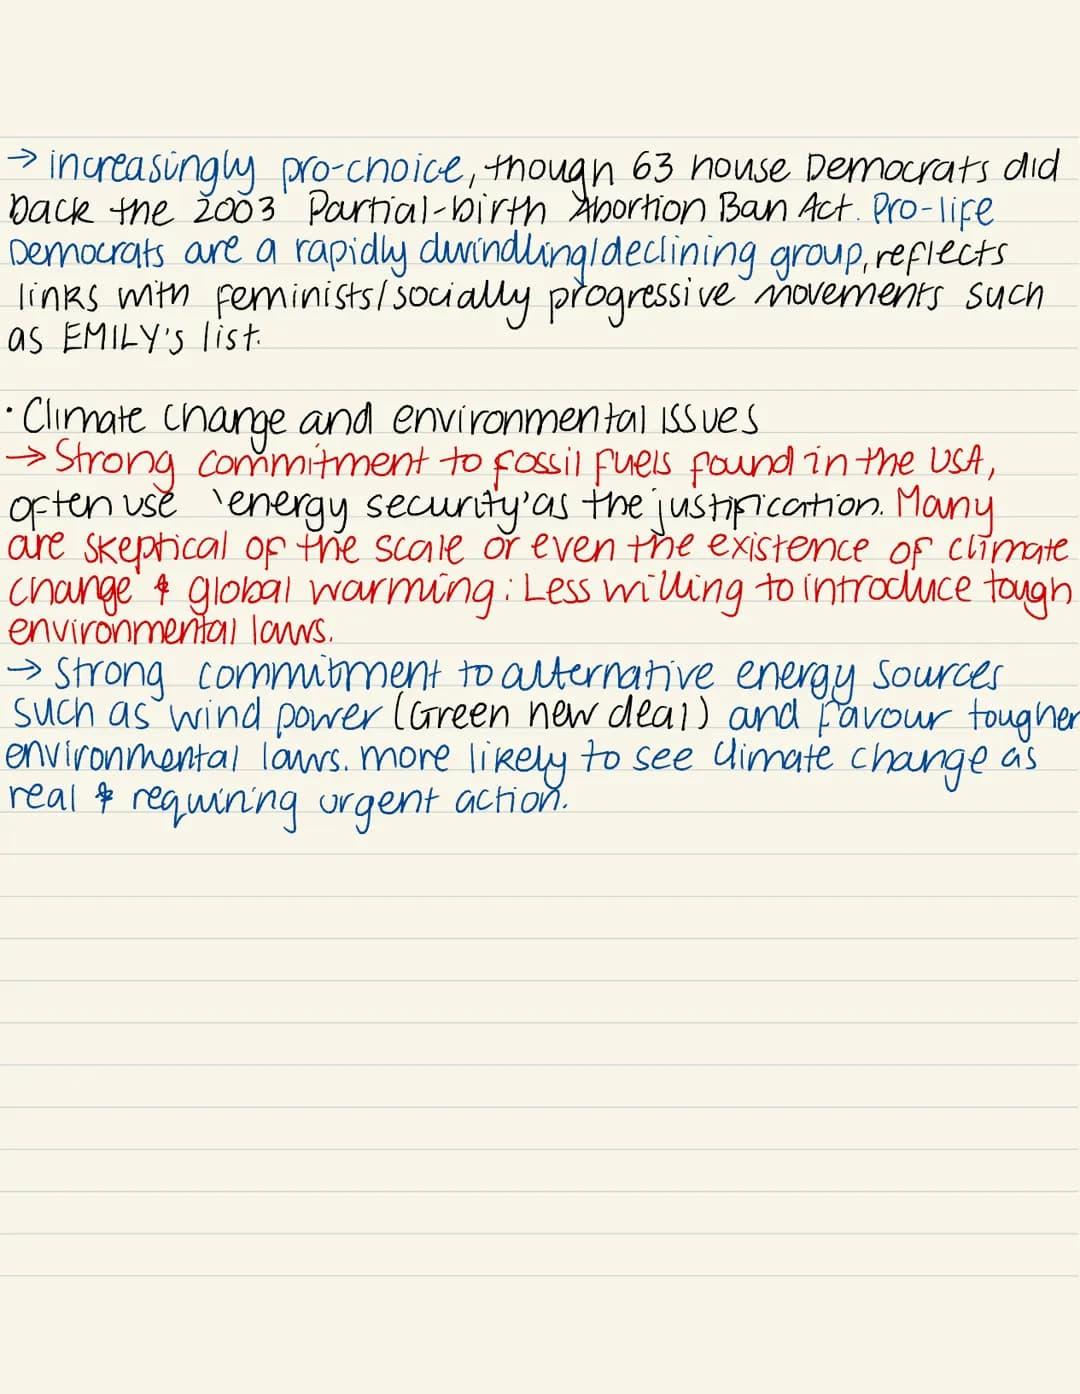 → increasingly pro-choice, though 63 house Democrats did
back the 2003 Partial-birth Abortion Ban Act. Pro-life
Democrats are a rapidly dwindling/declining group, reflects
links with feminists/socially progressive movements such
as EMILY's list.
· Climate change and environmental issues
→ Strong commitment to fossil fuels found in the USA,
often use 'energy security' as the justification. Many
are skeptical of the scale or even the existence of climate
change & global warming: Less willing to introduce tough
environmental laws.
→ Strong commitment to alternative energy sources
such as wind power (Green new deal) and favour tougher
environmental laws. more likely to see climate change as
real & requiring urgent action.